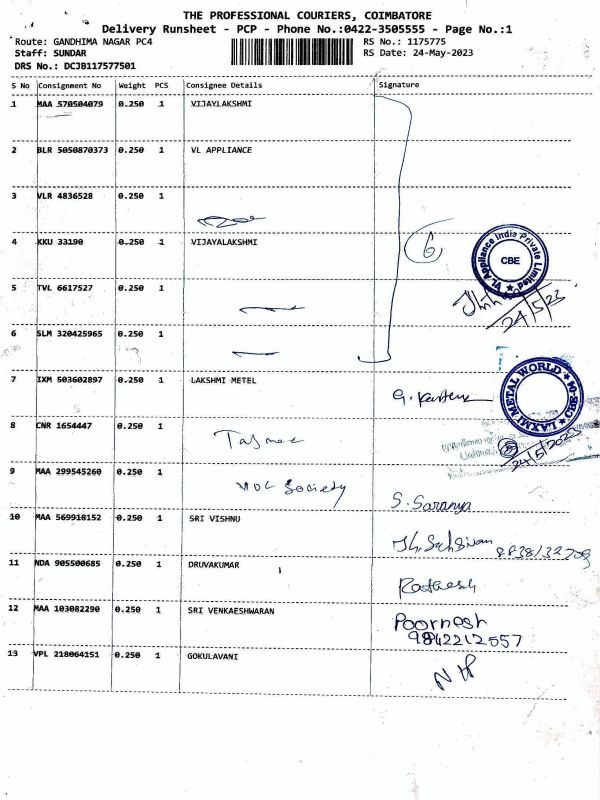 THE PROFESSIONAL COURIERS, COIMBATORE
Delivery Runsheet - PCP - Phone No.:0422-3505555 - Page No.:1
Route: GANDHIMA NAGAR PC4 RS No.: 1175775
Staff: SUNDAR RS Date: 24-May-2023
DRS No.: DCJB117577501
S No Consignment No Weight PCS Consignee Details Signature
1 MAA 570504079 0.250 1 VIJAYLAKSHMI
2 BLR 5050870373 0.250 1 VL APPLIANCE
3 VLR 4836528 0.250 1
4 KKU 33190 0.250 1 VIJAYALAKSHMI 6
VL Appliance India Private Limited CBE
24/5/23
5 TVL 6617527 0.250 1
6 SLM 320425965 0.250 1
7 IXM 503602897 0.250 1 LAKSHMI METEL G.
LAXMI METAL WORLD CBE-04
8 CNR 1654447 0.250 1 Tasmac
24/5/2023
9 MAA 299545260 0.250 1 Society S. Saranya
10 MAA 569918152 0.250 1 SRI VISHNU
11 NDA 905500685 0.250 1 DRUVAKUMAR
12 MAA 103082290 0.250 1 SRI VENKAESHWARAN Poornesh
9842212557
13 VPL 218064151 0.250 1 GOKULAVANI